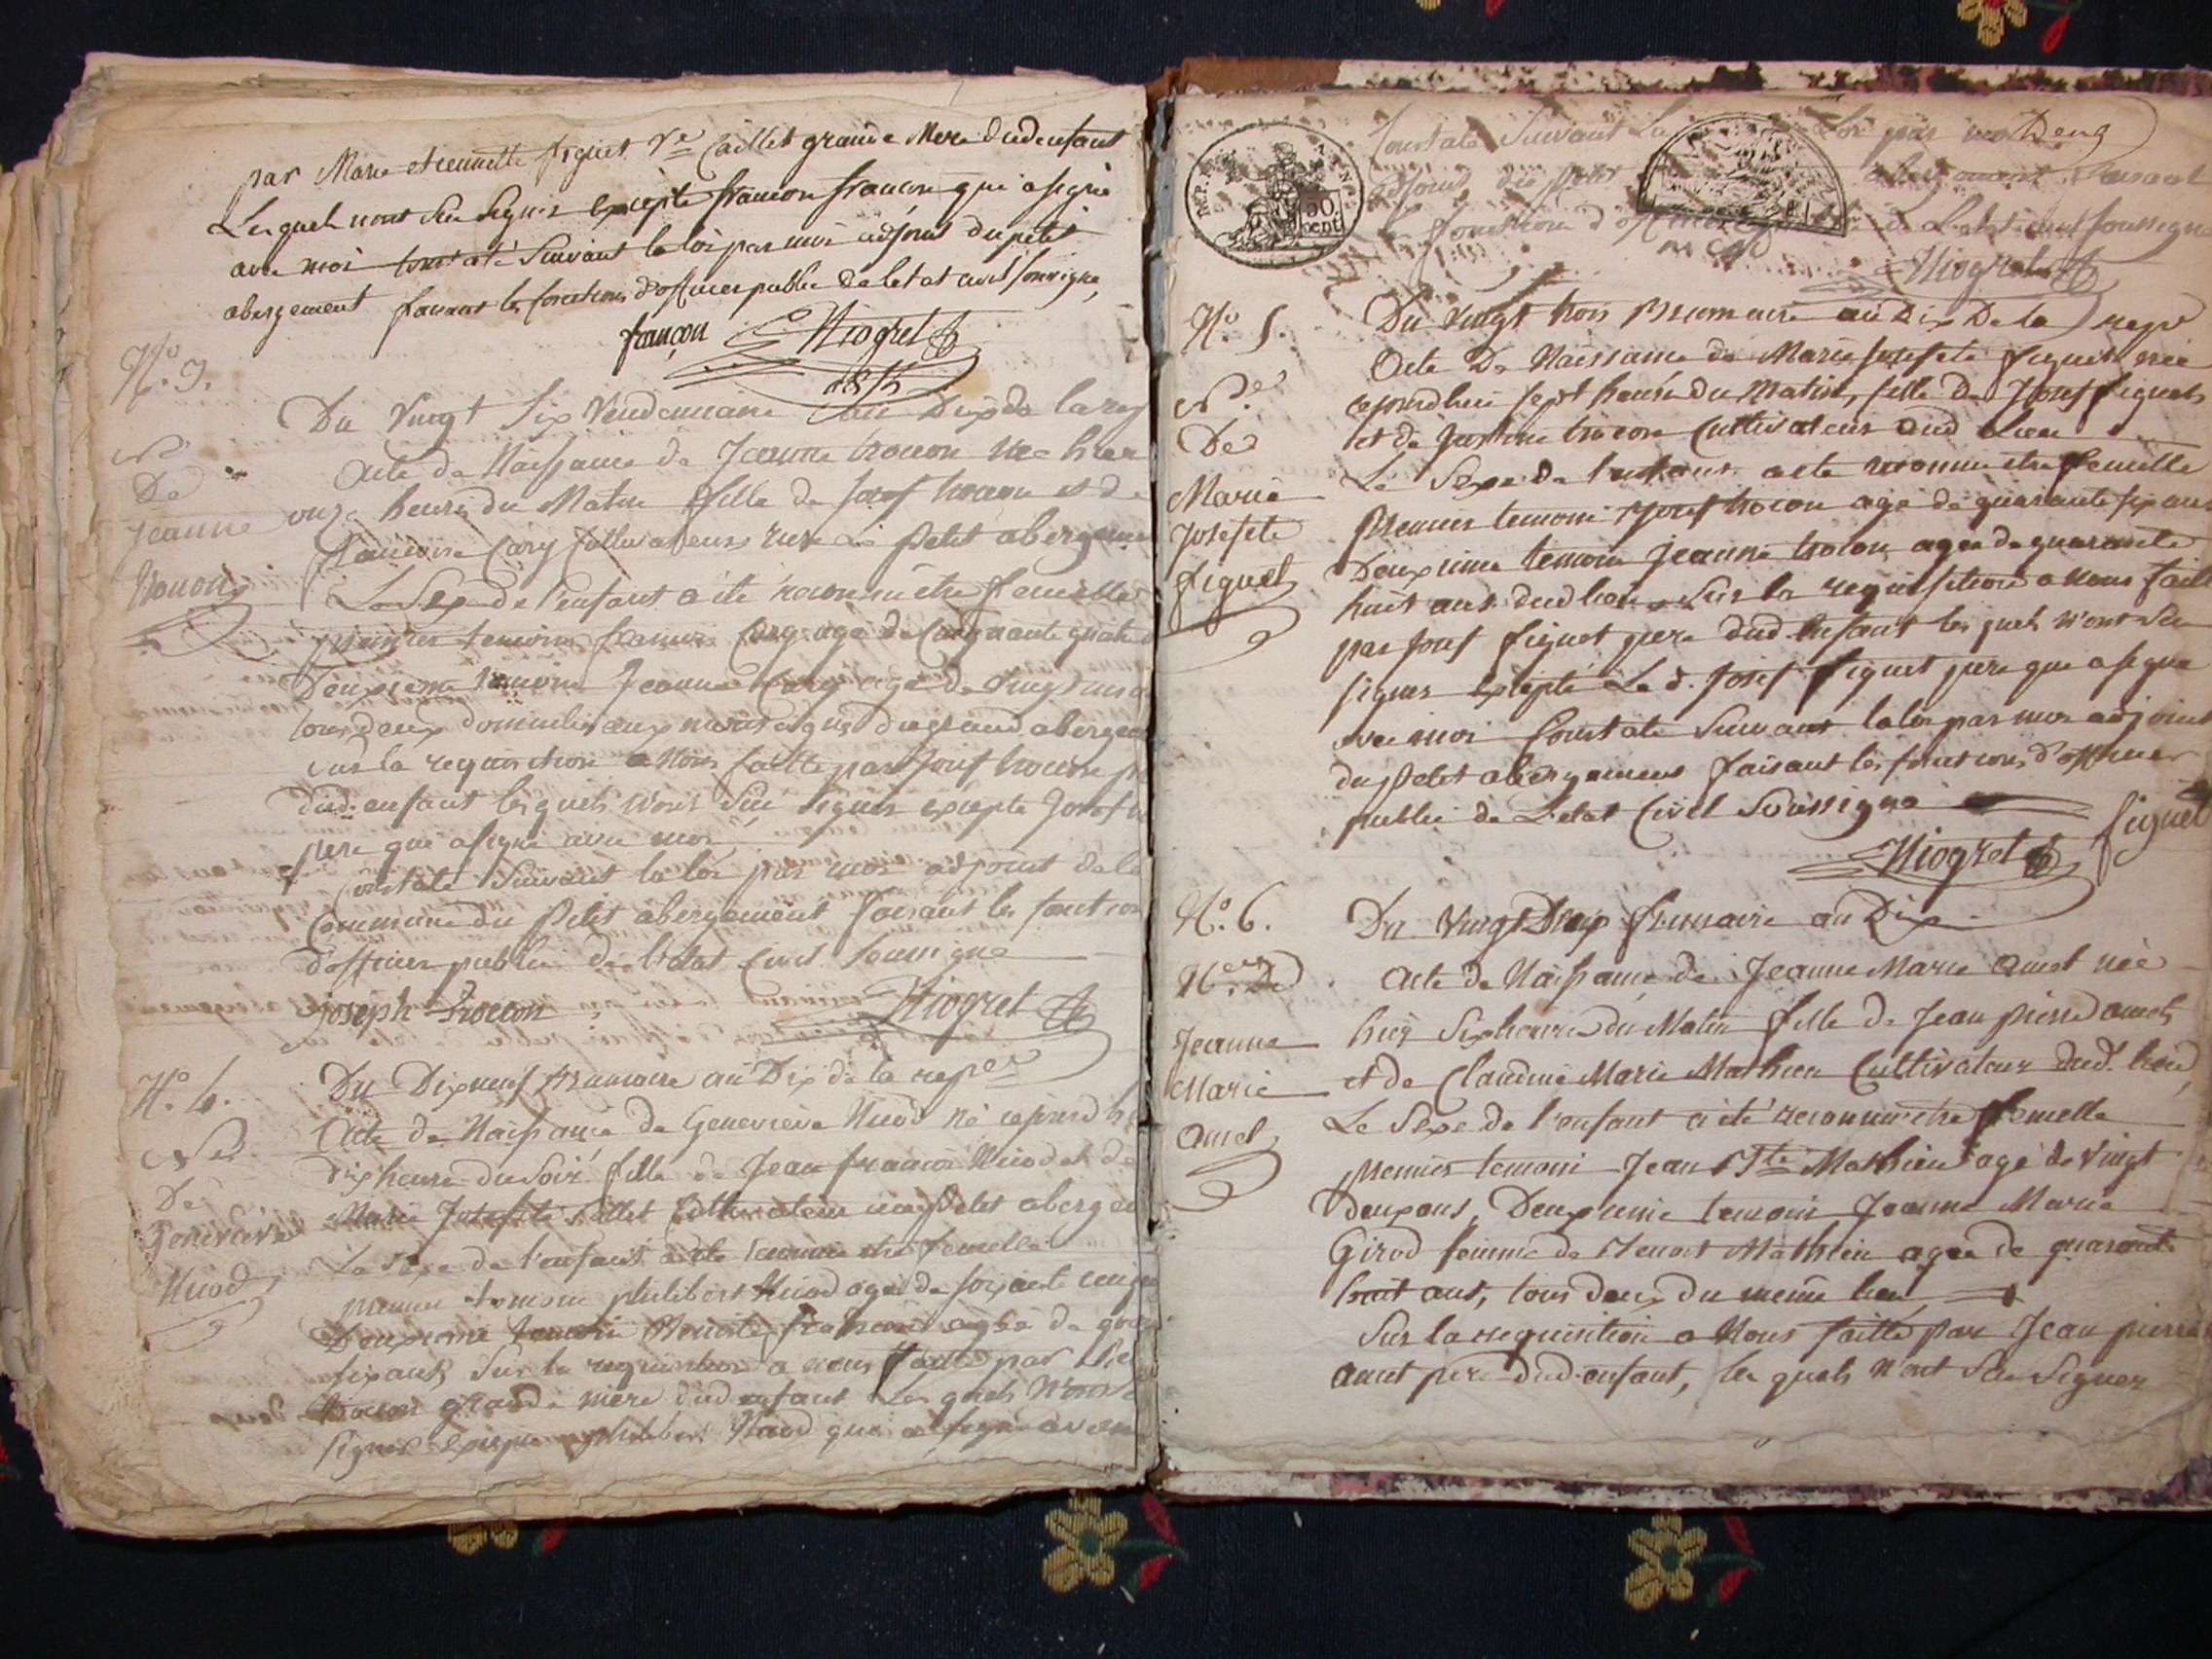 par Marie etiennette figuet Ve Caillet grande Mere dudenfant
Lesquels nont Seu Signer Excepté francon qui a signé
avec moi Constaté Suivant la loi par moi adjoint du petit
abergement faisant les fonctions d'officier public de letat civil soussigné,
françon Niogret
N.o 3.
Du Vingt Six Vendemiaire an Dix de la rep
Acte de Naissance de Jeanne trocon née hier
onze heures du Matin fille de Josef trocon et de
francoise Cary Cultivateurs Le Petit abergeme
Le Sexe de l'enfant a été reconnu être femelle
premier temoin francois Cary agé de Cinquante quatre
Deuxieme temoin Jeanne Cary agé de Vingt
tous deux du grand aberge
sur la requisition a Nous faitte par Josef trocon
dud. enfant lesquels N'ont Seu Signer excepté Josef
pere qui a signé avec moi
Constaté Suivant la loi par moi adjoint de la
Commune du Petit abergement faisant les fonction
d'officier public de l'etat Civil soussigné
joseph trocon Niogret
Ne
De
Jeanne
trocon
N.o 4.
Du Dixneuf Brumaire an Dix de la rep
Acte de Naissance de Genevieve Nicod né
dix heure du Soir fille de Jean francois Nicod et de
Marie Josefte Cultivateur au Petit aberge
Le Sexe de l'enfant a été reconnu etre femelle
premier temoin philibert Nicod agé de soixante
Deuxieme temoin agée de
six ans, Sur la requisition a nous faitte par
trocon grande mere dud enfant Les quels N'ont
Signer Excepté philibert Nicod qui a signé avec
Ne
De
Genevieve
Nicod
50
cent
Constaté Suivant La Loi par
adjoint du petit abergement faisant
les fonctions d'officier de L'etat civil soussigné
Niogret
N.o 5.
Du Vingt trois Brumaire an Dix De la rep
Acte De Naissance de Marie Josefete figuet née
cejourdhui sept heure du Matin, fille de Josef figuet
et de trocon Cultivateurs aud Lieu
Le Sexe de l'enfant a eté reconnu etre femelle
Premier temoin Josef trocon agé de quarante six ans
Deuxieme temoin Jeanne trocon agée de quarante
huit ans dud lieu Sur la requisition a Nous fait
par Josef figuet pere dud. Enfant les quels N'ont Seu
signer Excepté Le d. Josef figuet pere qui a signé
avec moi Constaté Suivant la loi par moi adjoint
du Petit abergement faisant les fonctions d'officier
public de L'etat Civil Soussigné
figuet
Niogret
Ne
De
Marie
Josefete
figuet
N.o 6.
Du Vingt Deux frimaire an Dix
Acte de Naissance de Jeanne Marie Amet née
hier Six heure du Matin fille de Jean pierre amet
et de Claudine Marie Mathieu Cultivateur dud. lieu
Le Sexe de l'enfant a été reconnu etre femelle
premier temoin Jean Bte Mathieu agé de Vingt
deux ans, Deuxieme temoin Jeanne Marie
Girod femme de Benoit Mathieu agée de quarante
huit ans, tous deux du meme lieu
Sur la requisition a Nous faitte par Jean pierre
amet pere dud. enfant, les quels N'ont Seu Signer
Nce De
Jeanne
Marie
Amet